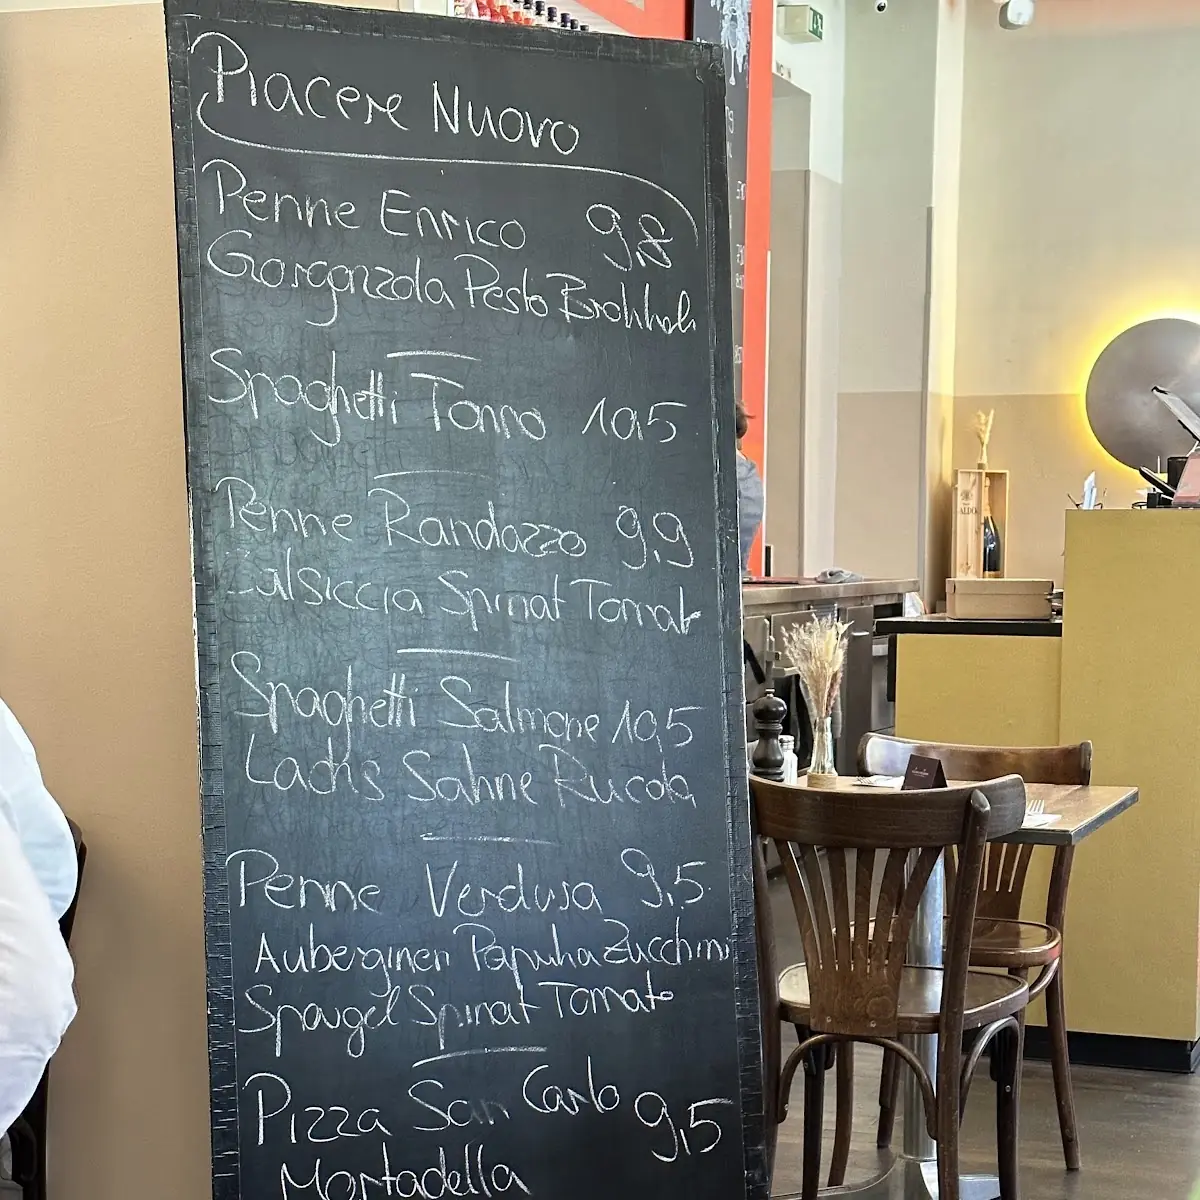 Piacere Nuovo
Penne Enrico 9,8
Gorgonzola Pesto Brokkoli
Spaghetti Tonno 10,5
Penne Randazzo 9,9
Salsiccia Spinat Tomat
Spaghetti Salmone 10,5
Lachs Sahne Rucola
Penne Verdusa 9,5
Auberginen Paprika Zucchini
Spargel Spinat Tomate
Pizza San Carlo 9,5
Mortadella